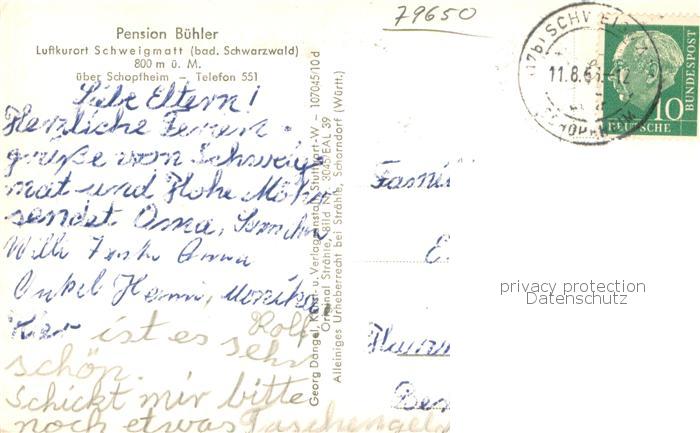 79650
Pension Bühler
Luftkurort Schweigmatt (bad. Schwarzwald)
800 m ü. M.
über Schopfheim – Telefon 551
Liebe Eltern!
Herzliche Ferien-
grüße von Schweig
mat und Hohe Möhr
sendet Oma,
Willi Anna
Onkel Monika
Rolf
Hier ist es sehr
schön.
Schickt mir bitte
noch etwas Taschengeld
Georg Dangel, Kunst- u. Verlagsanstalt, Stuttgart-W – 107045/10 d
Original Strähle, Bild Nr. 3045/EAL 39
Alleiniges Urheberrecht bei Strähle, Schorndorf (Württ.)
Famili
11.8.
10
DEUTSCHE
BUNDESPOST
privacy protection
Datenschutz